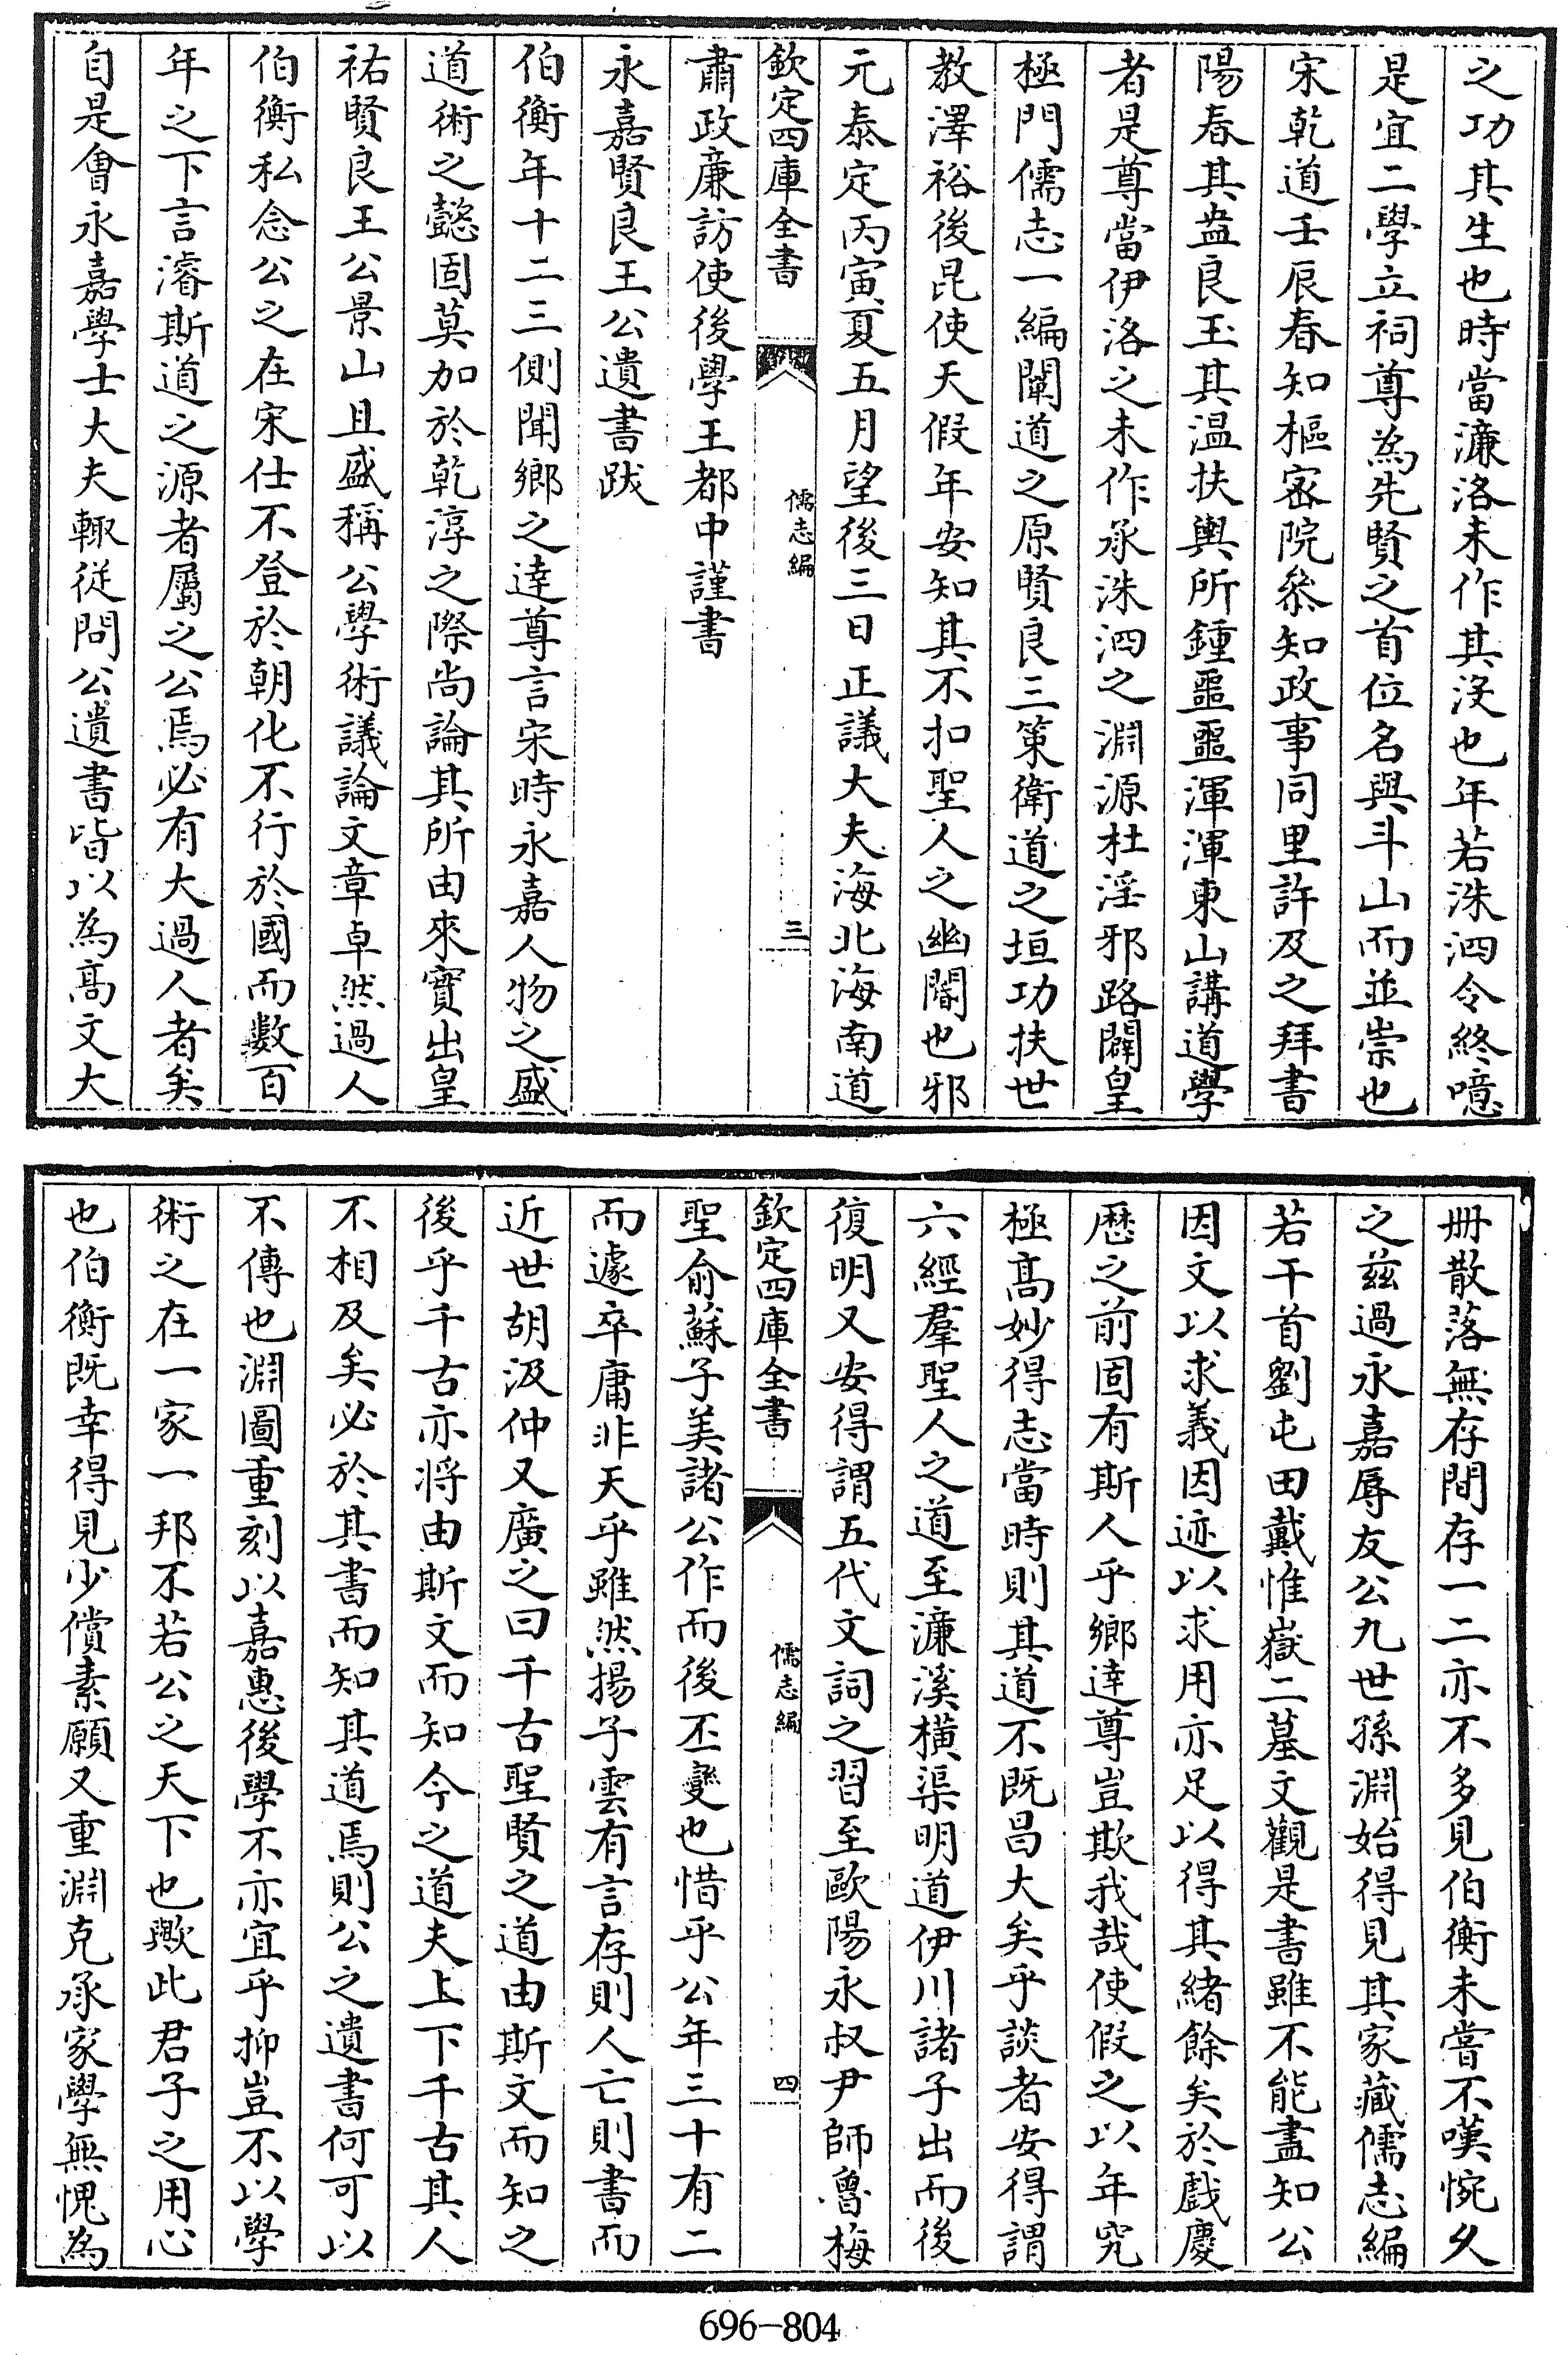 之功其生也時當濂洛未作其沒也年若洙泗令終噫
是宜二學立祠尊為先賢之首位名與斗山而並崇也
宋乾道壬辰春知樞宻院叅知政事同里許及之拜書
陽春其盎良玉其温扶輿所鍾噩噩渾渾東山講道學
者是尊當伊洛之未作承洙泗之淵源杜淫邪路闢皇
極門儒志一編闡道之原賢良三策衛道之垣功扶世
教澤裕後昆使天假年安知其不扣聖人之幽闇也邪
元泰定丙寅夏五月望後三日正議大夫海北海南道
欽定四庫全書
儒志編
三
肅政廉訪使後學王都中謹書
永嘉賢良王公遺書跋
伯衡年十二三側聞鄉之達尊言宋時永嘉人物之盛
道術之懿固莫加於乾淳之際尚論其所由來實出皇
祐賢良王公景山且盛稱公學術議論文章卓然過人
伯衡私念公之在宋仕不登於朝化不行於國而數百
年之下言濬斯道之源者屬之公焉必有大過人者矣
自是會永嘉學士大夫輙從問公遺書皆以為高文大
冊散落無存間存一二亦不多見伯衡未嘗不嘆惋久
之兹過永嘉辱友公九世孫淵始得見其家藏儒志編
若干首劉屯田戴惟嶽二墓文觀是書雖不能盡知公
因文以求義因迹以求用亦足以得其緒餘矣於戲慶
歴之前固有斯人乎鄉達尊豈欺我哉使假之以年究
極髙妙得志當時則其道不既昌大矣乎談者安得謂
六經羣聖人之道至濂溪橫渠明道伊川諸子出而後
復明又安得謂五代文詞之習至歐陽永叔尹師魯梅
欽定四庫全書
儒志編
四
聖俞蘇子美諸公作而後丕變也惜乎公年三十有二
而遽卒庸非天乎雖然揚子雲有言存則人亡則書而
近世胡汲仲又廣之曰千古聖賢之道由斯文而知之
後乎千古亦將由斯文而知今之道夫上下千古其人
不相及矣必於其書而知其道焉則公之遺書何可以
不傳也淵圖重刻以嘉惠後學不亦宜乎抑豈不以學
術之在一家一邦不若公之天下也歟此君子之用心
也伯衡既幸得見少償素願又重淵克承家學無愧為
696-804